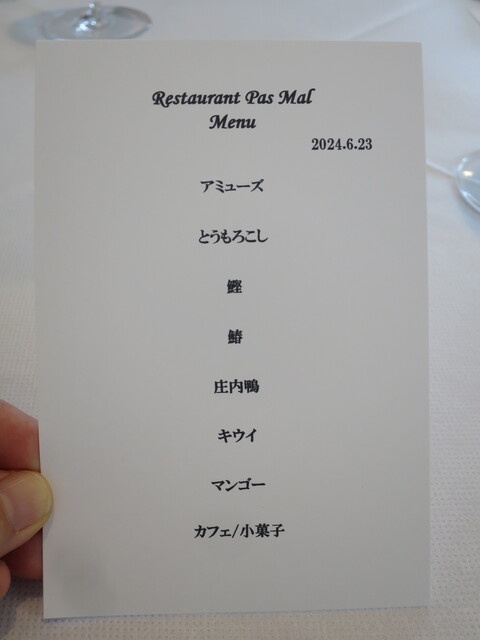 Restaurant Pas Mal
Menu
2024.6.23
アミューズ
とうもろこし
鰹
鰆
庄内鴨
キウイ
マンゴー
カフェ/小菓子